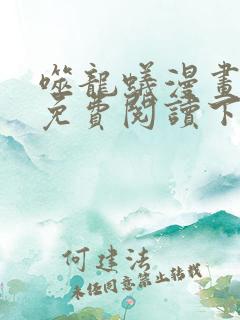 噬龍蟻漫畫
免費閱讀下
何建法
未经同意禁止转载